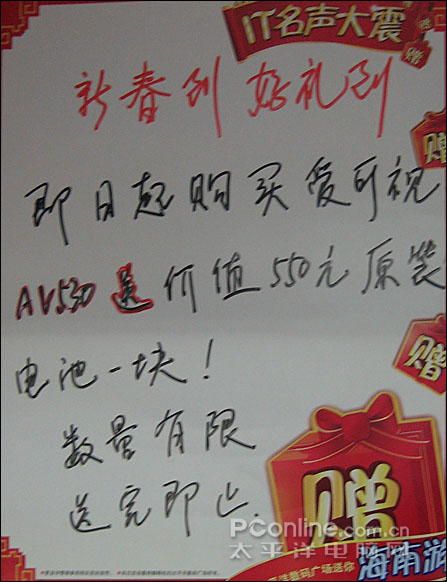 IT名声大震
赠
新春到 好礼到
赠
即日起购买爱可视
AV530送价值550元原装
电池一块!
赠
数量有限
送完即止.
赠
PConline.com.cn
太平洋电脑网
数码广场送你
海南游